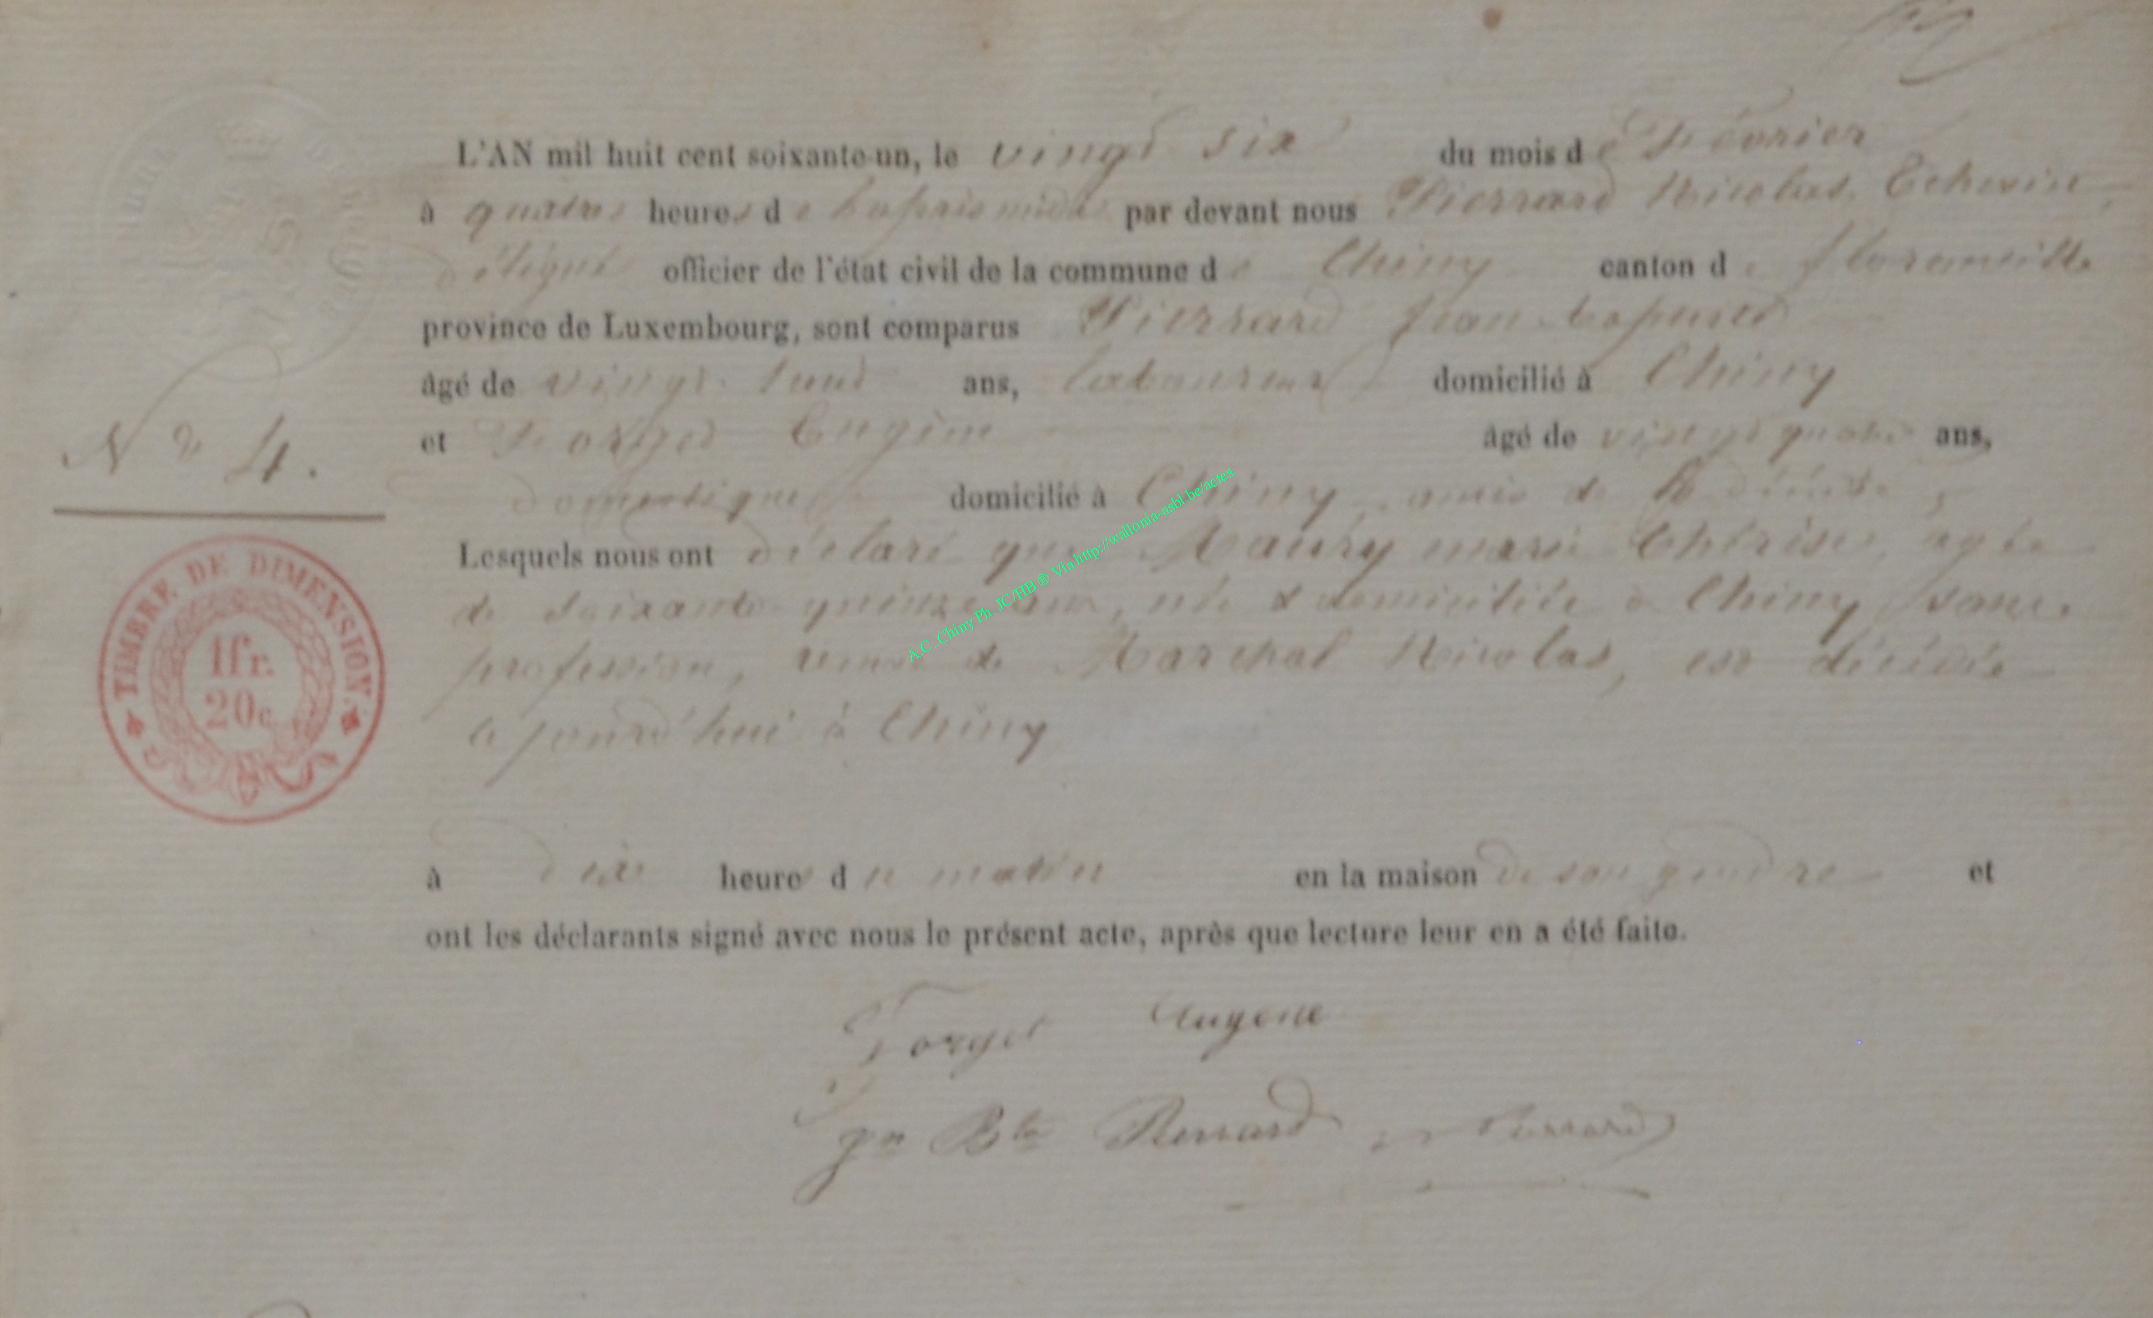 L'AN mil huit cent soixante-un, le vingt six du mois de Février
à quatre heures de l'après midi par devant nous Pierrard Nicolas, Echevin
délégué officier de l'état civil de la commune de Chiny canton de florenville
province de Luxembourg, sont comparus Pierrard Jean
âgé de vingt ans, laboureur domicilié à Chiny
et Forget Eugène âgé de vingt quatre ans,
N° 4.
domestique domicilié à Chiny, amis de
Lesquels nous ont déclaré que Maury marie thérèse, agée
de soixante quinze ans, née & domiciliée à Chiny sans
profession, veuve de Marchal Nicolas, est décédée
à Chiny
TIMBRE DE DIMENSION.
1fr.
20c
à dix heures du matin en la maison de son gendre et
ont les déclarants signé avec nous le présent acte, après que lecture leur en a été faite.
Forget Eugene
Jn Bte Pierrard Pierrard
A.C. Chiny Ph. JC/HB® Via http://wallonia-asbl.be/actes